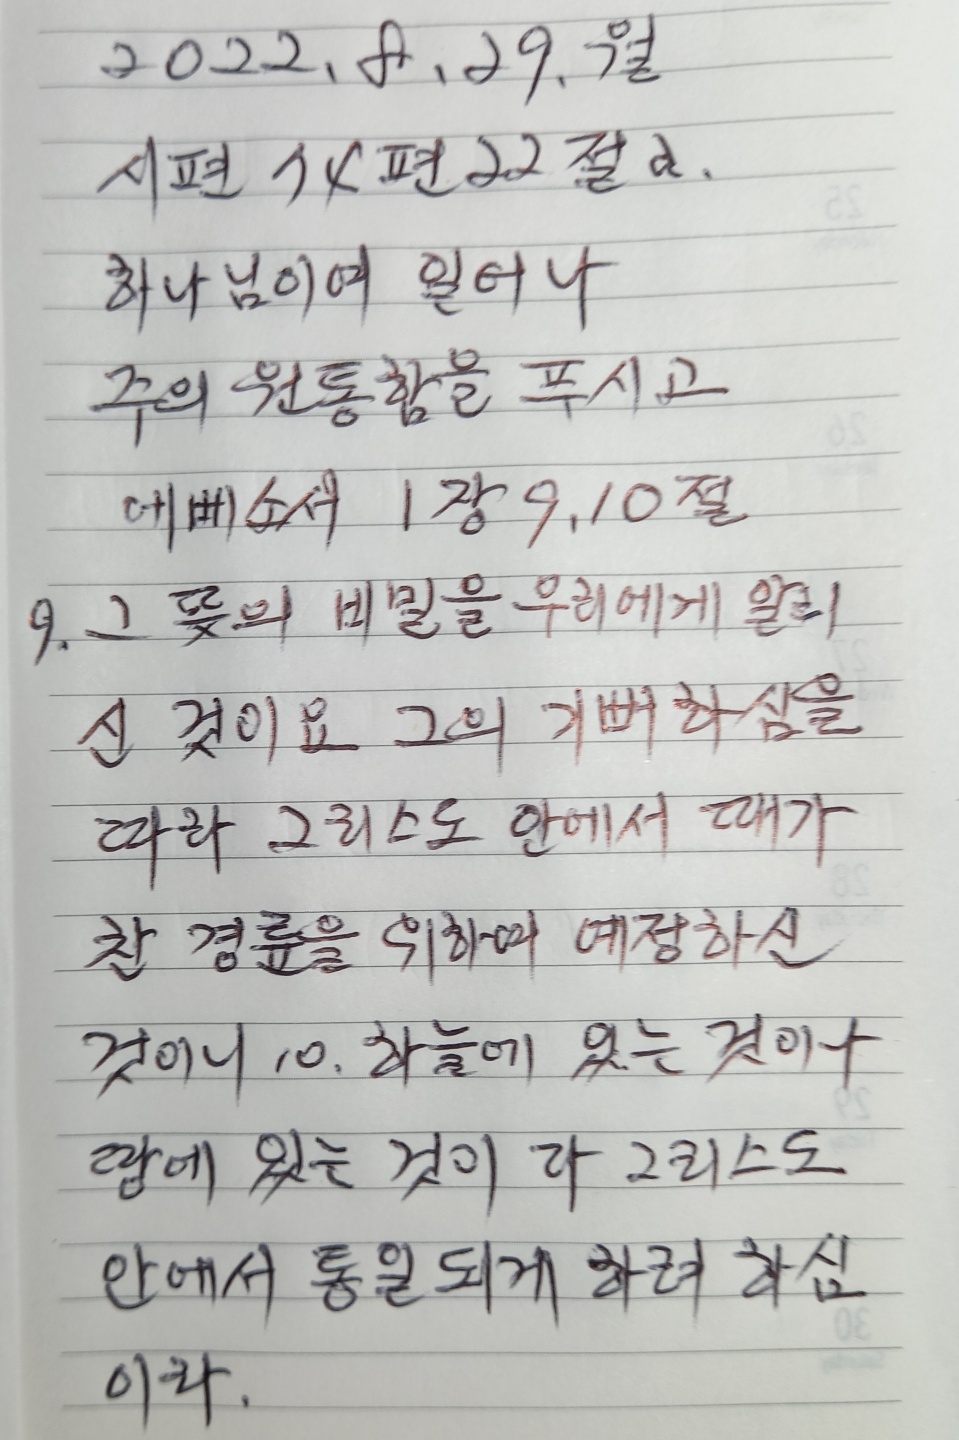 2022. 8. 29. 월
시편 74편 22절 a.
하나님이여 일어나
주의 원통함을 푸시고
에베소서 1장 9, 10절
9. 그 뜻의 비밀을 우리에게 알리
신 것이요 그의 기뻐하심을
따라 그리스도 안에서 때가
찬 경륜을 위하여 예정하신
것이니 10. 하늘에 있는 것이나
땅에 있는 것이 다 그리스도
안에서 통일되게 하려 하심
이라.